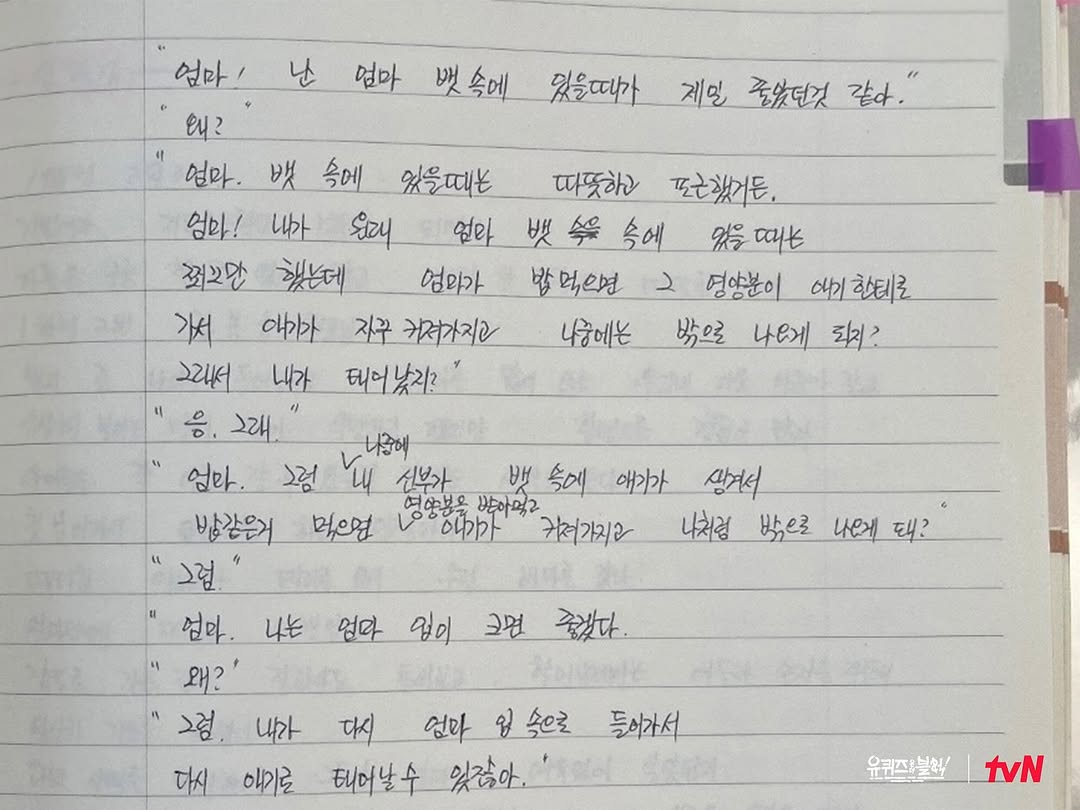 "엄마! 난 엄마 뱃속에 있을때가 제일 좋았던것 같아."
"왜?"
"엄마. 뱃 속에 있을때는 따뜻하고 포근했거든.
엄마! 내가 원래 엄마 뱃 속에 있을때는
쬐끄만 했는데 엄마가 밥 먹으면 그 영양분이 애기한테로
가서 애기가 자꾸 커져가지고 나중에는 밖으로 나오게 되지?
그래서 내가 태어났지?"
"응. 그래."
나중에
"엄마. 그럼 내 신부가 뱃 속에 애기가 생겨서
영양분을 받아먹고
밥같은거 먹으면 애기가 커져가지고 나처럼 밖으로 나오게 돼?"
"그럼."
"엄마. 나는 엄마 입이 크면 좋겠다.
"왜?"
"그럼. 내가 다시 엄마 입 속으로 들어가서
다시 애기로 태어날 수 있잖아."
유퀴즈온더블럭! tvN